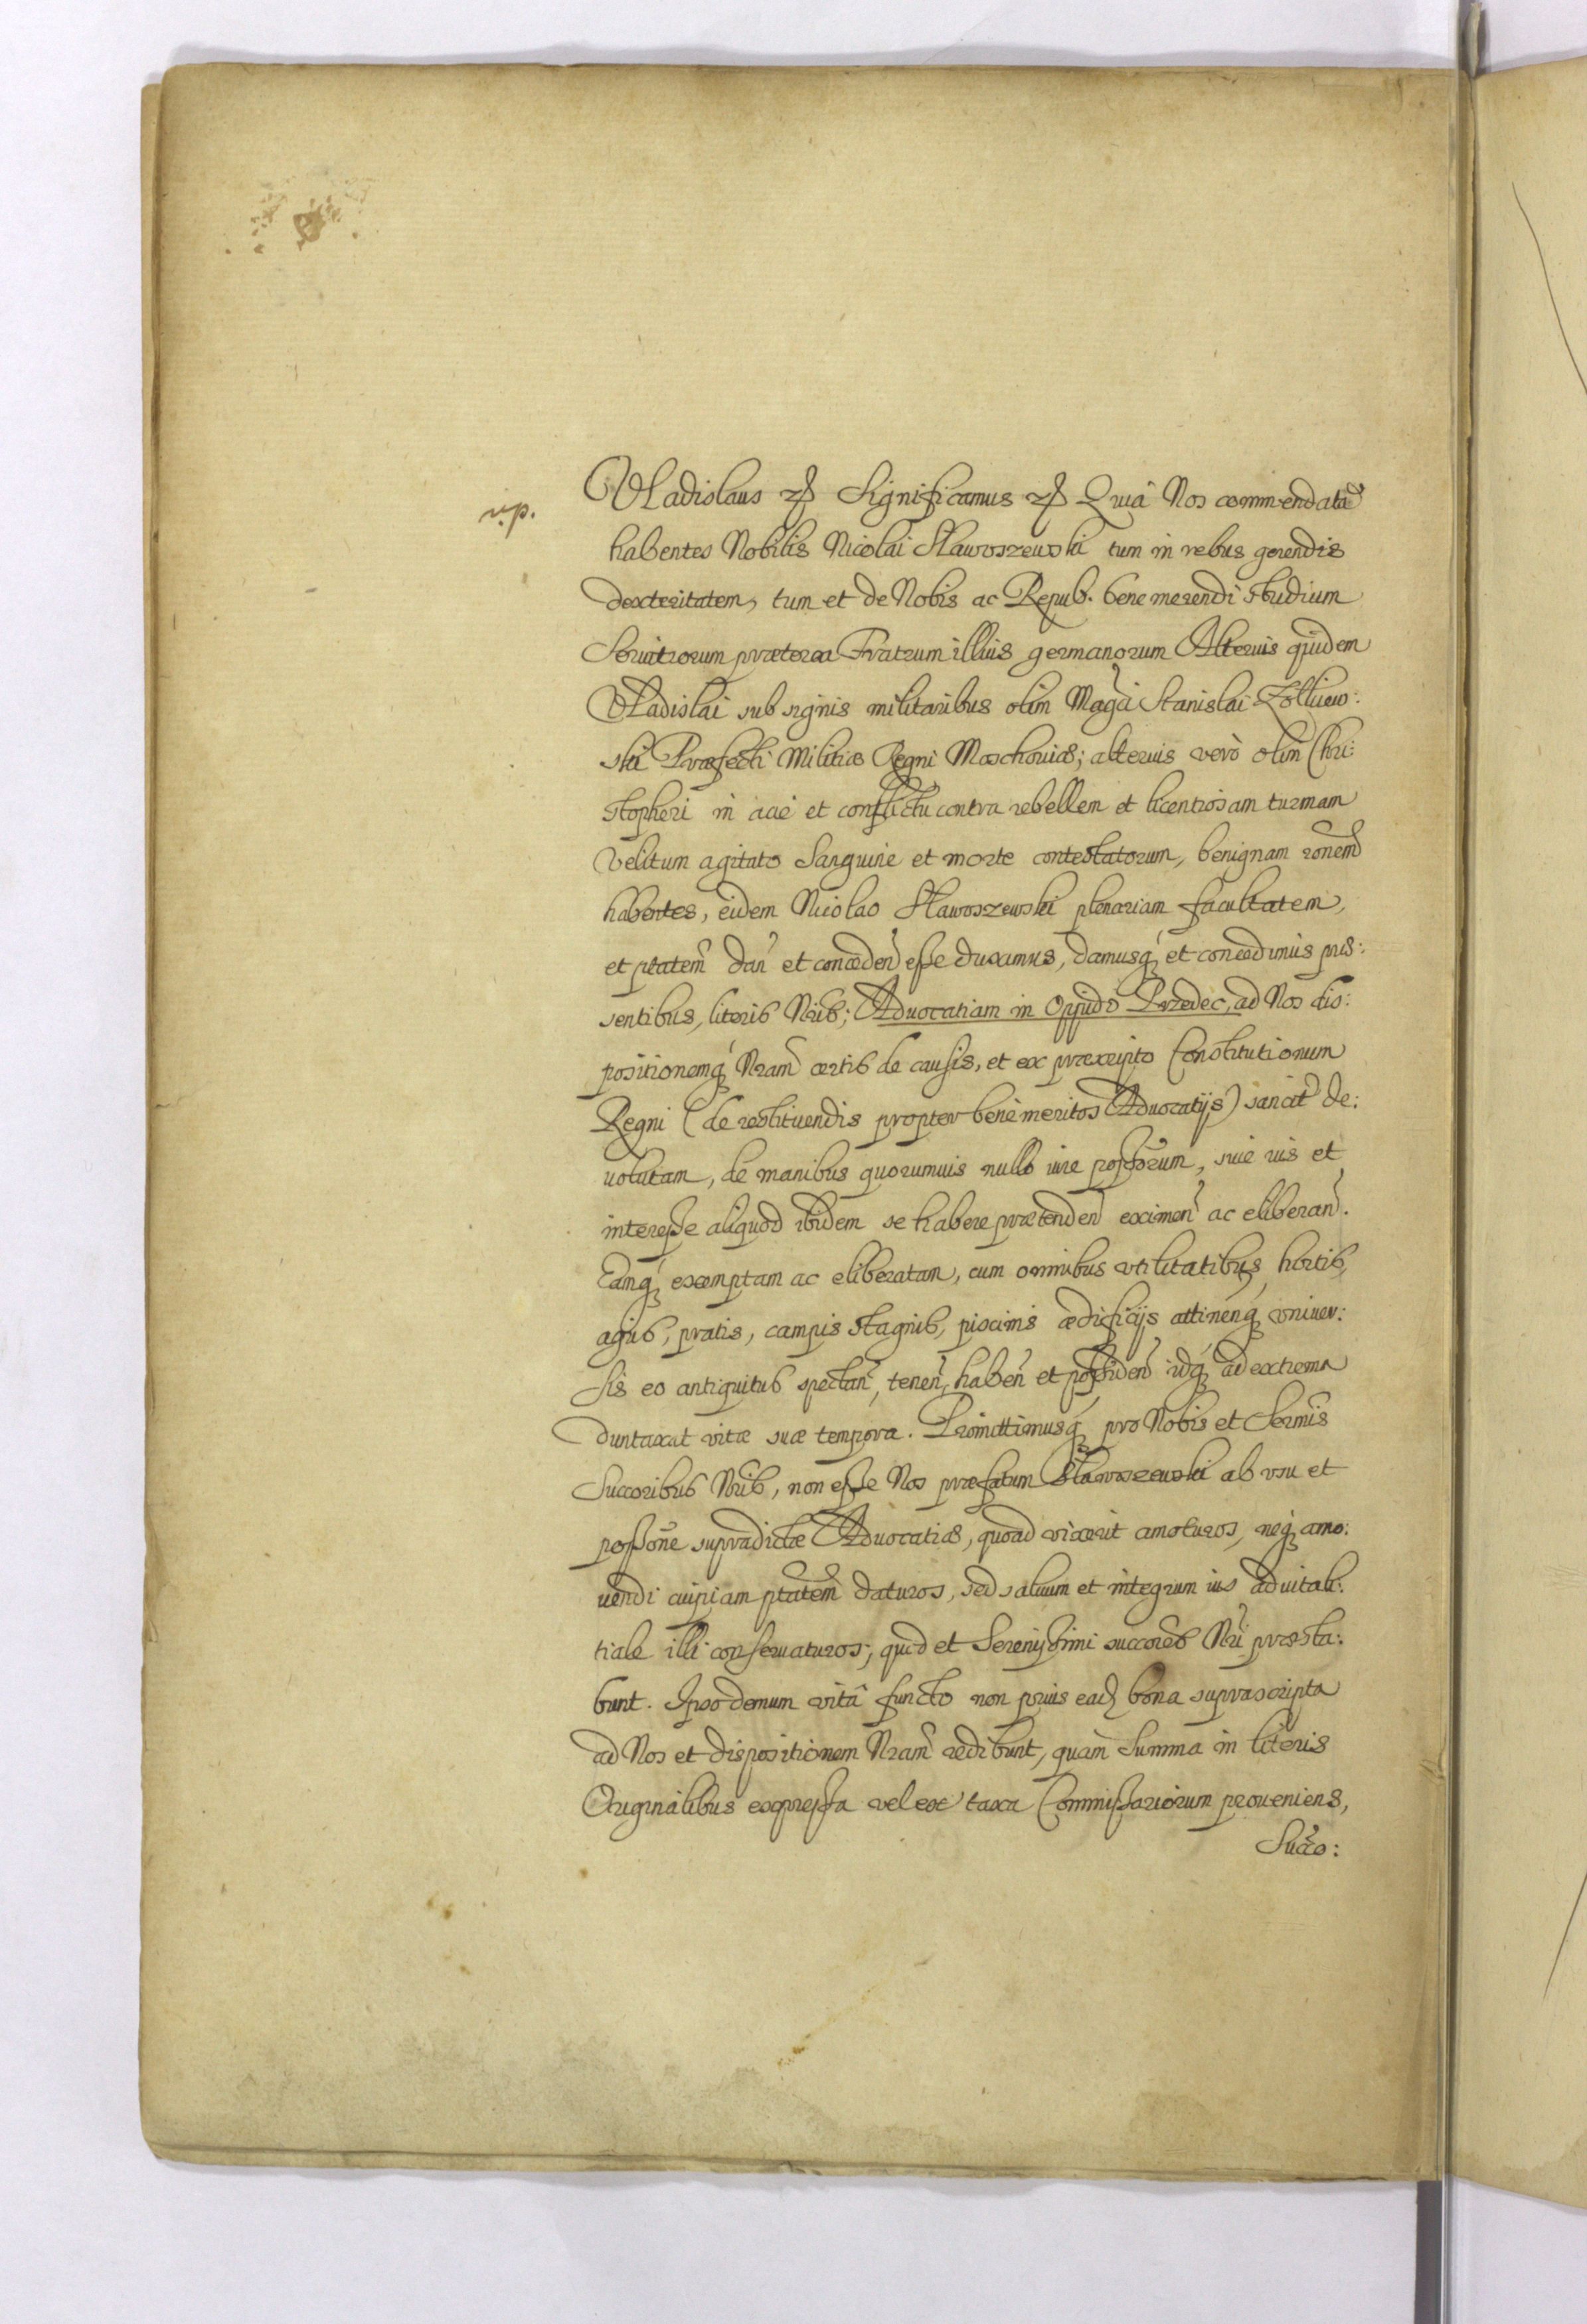 Vladislaus etc. Significamus etc. Quià Nos commendatā
habentes Nobilis Nicolai Sławoszewski tum in rebus gerendis
dexteritatem, tum et de Nobis ac Repub. bene merendi studium
Seruitiorum præterea Fratrum illius germanorum Alterius quidem
Vladislai sub signis militaribus olim Magci Stanislai Zołkiew:
ski Præfecti Militiæ Regni Moschouiæ; alterius verò olim Chri:
stopheri in acie et conflictu contra rebellem et licentiosam turmam
Velitum agitato Sanguine et morte contestatorum, benignam rōnem
habentes, eidem Nicolao Sławoszewski plenariam facultatem,
et ptatem̄ dan̄ et conceden̄ esse duximus, damusq́ et concedimus præ:
sentibus, literis Nris; Aduocatiam in Oppido Przedec, ad Nos dis:
positionemq́ Nram̄ certis de causis, et ex præscripto Constitutionum
Regni (de restituendis propter benè meritos Aduocatijs) sancit̄ de:
uolutam, de manibus quorumuis nullo iure possōrum, siue ius et
interesse aliquod ibidem se habere prætenden̄ eximen̄ ac eliberan̄.
Eamq́ exemptam ac eliberatam, cum omnibus vtilitatibus, hortis,
agris, pratis, campis stagnis, piscinis ædificijs attinenq́ vniuer:
sis eo antiquitus spectan̄, tenen̄, haben̄ et possiden̄ idq́ ad extrema
duntaxat vitæ suæ tempora. Promittimusq́ pro Nobis et Sermis
Succoribus Nris, non esse Nos præfatum Sławoszewski ab vsu et
possōne supradictæ Aduocatiæ, quoad vixerit amoturos, neq́ amo:
uendi cuipiam ptatem̄ daturos, sed saluum et integrum ius aduitali:
tiale illi conseruaturos; quod et Serenissimi succores Nri præsta:
bunt. Ipso demum vitâ functo non prius eadꝫ bona suprascripta
ad Nos et dispositionem Nram̄ redibunt, quàm Summa in literis
Originalibus expressa vel ex taxa Commissariorum proueniens,
Succo: